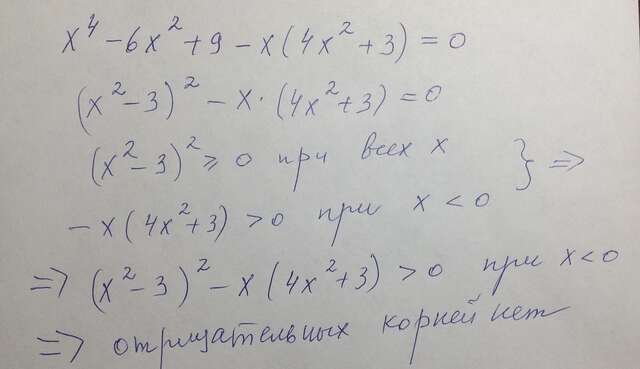 x⁴ - 6x² + 9 - x(4x² + 3) = 0
(x² - 3)² - x · (4x² + 3) = 0
(x² - 3)² ⩾ 0 при всех x
} =>
- x(4x² + 3) > 0 при x < 0
=> (x² - 3)² - x(4x² + 3) > 0 при x < 0
=> отрицательных корней нет